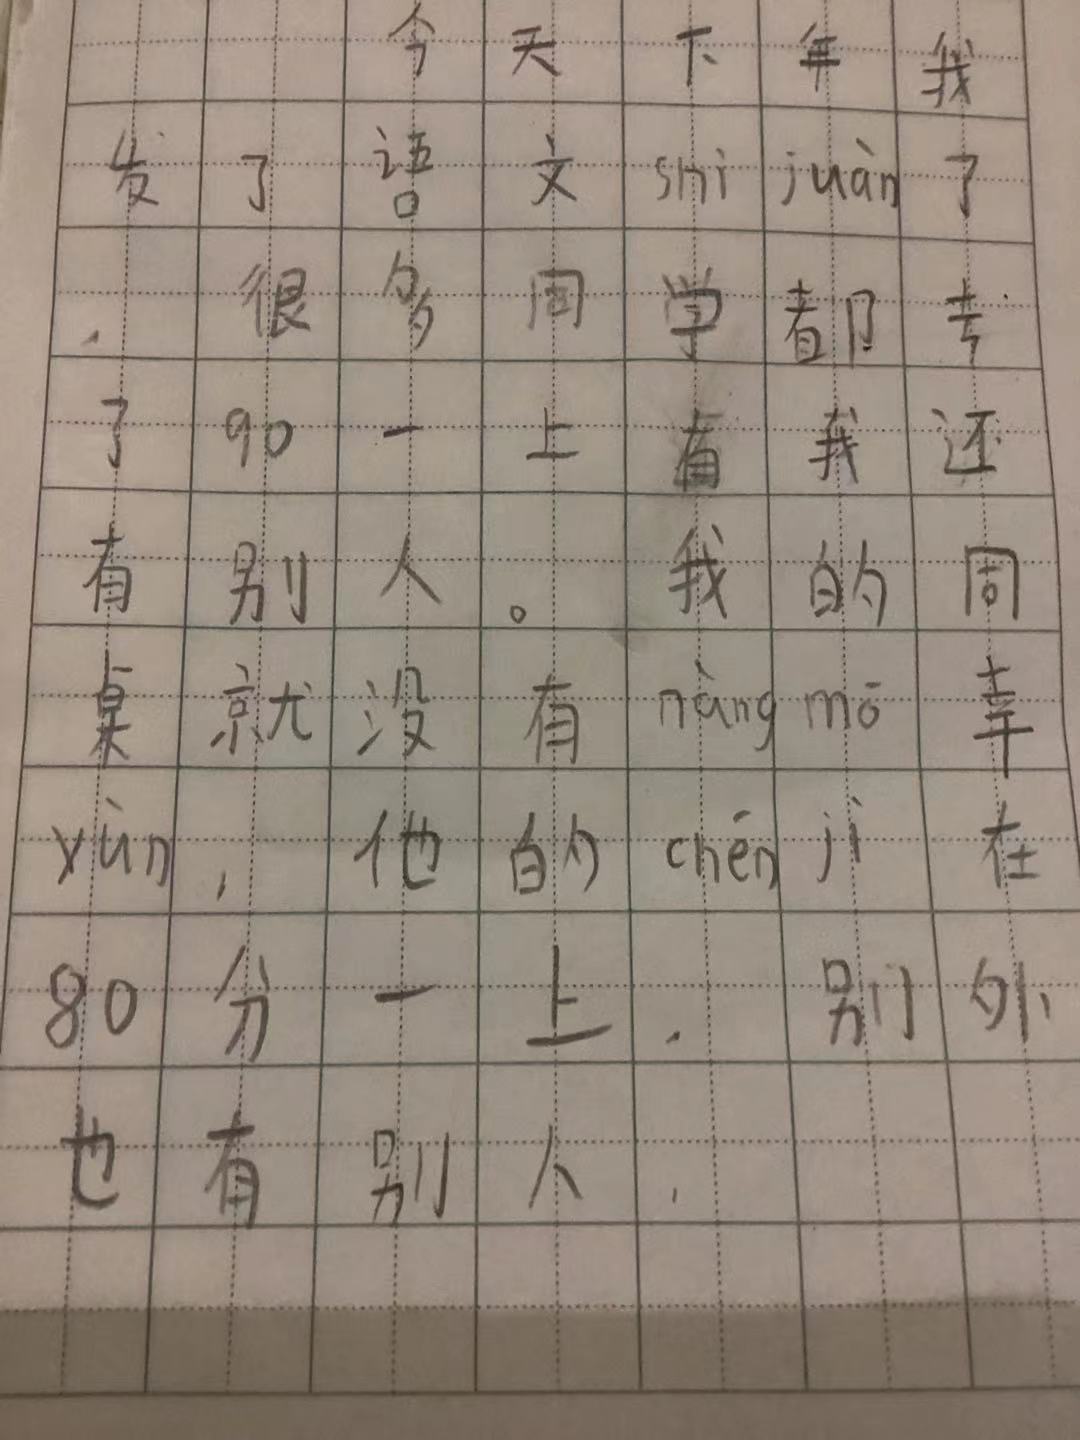 今天下年我
发了语文shi juàn了
. 很多同学都考
了90一上有我还
有别人。我的同
桌就没有nàng mō幸
yùn, 他的chēn jì在
80分一上. 别外
也有别人.